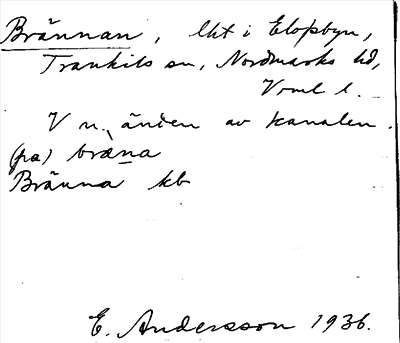 Brännan, lht i Elofsbyn,
Trankils sn, Nordmarks hd,
Vrml l.
V n. änden av kanalen.
(pa) bræna
Bränna kb
E. Andersson 1936.